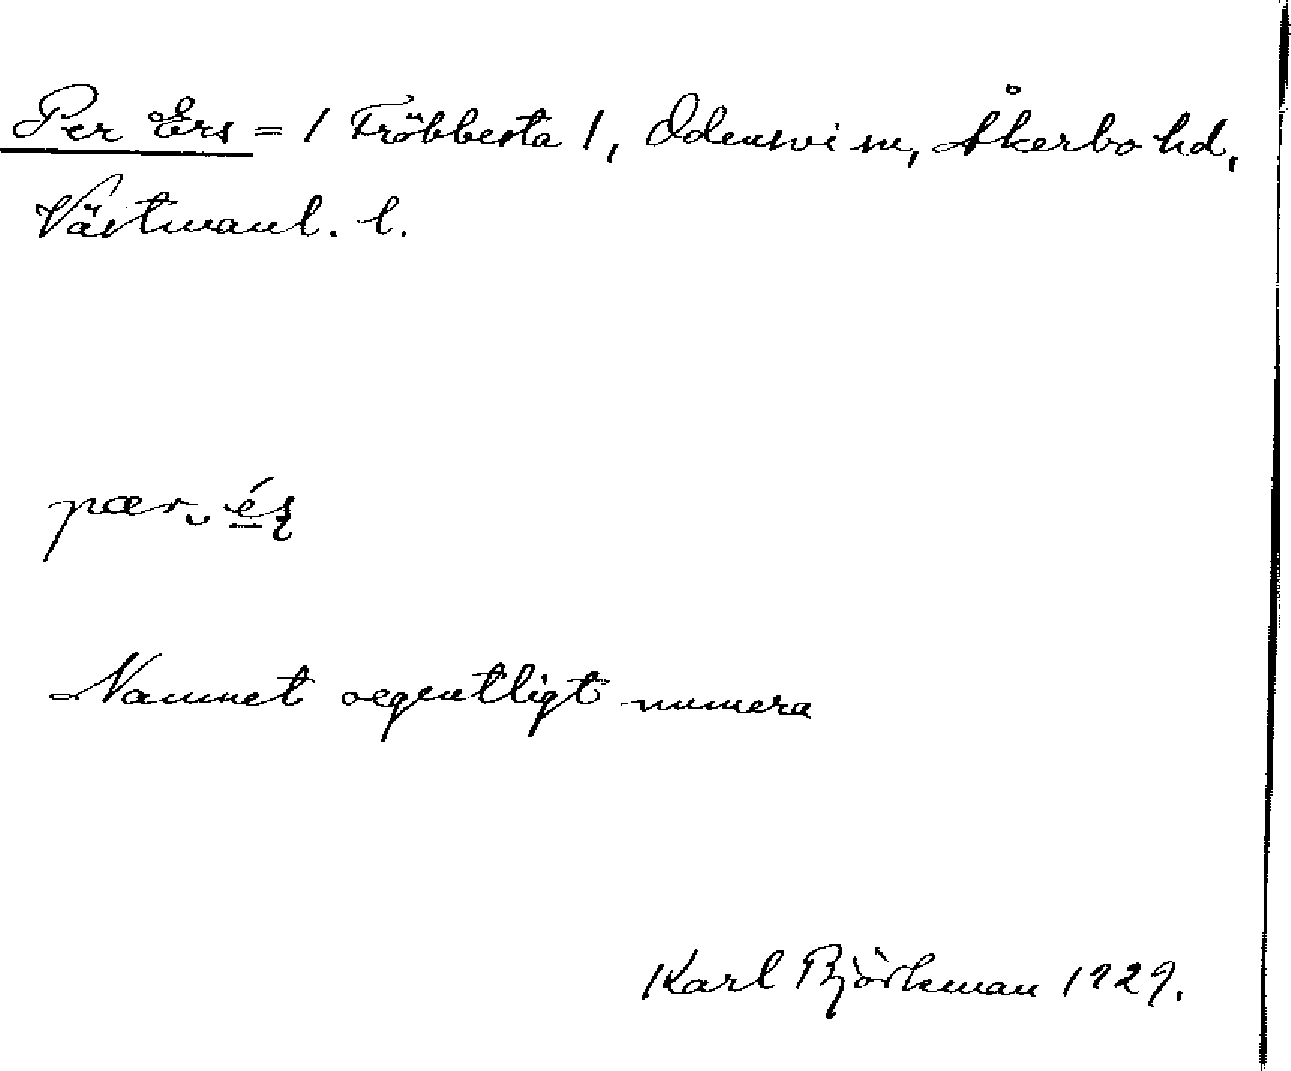 Per Ers = / Fröbbesta /, Odensvi sn, Åkerbo hd,
Västmanl. l.
pær
Namnet oegentligt numera
Karl Björkman 1929.